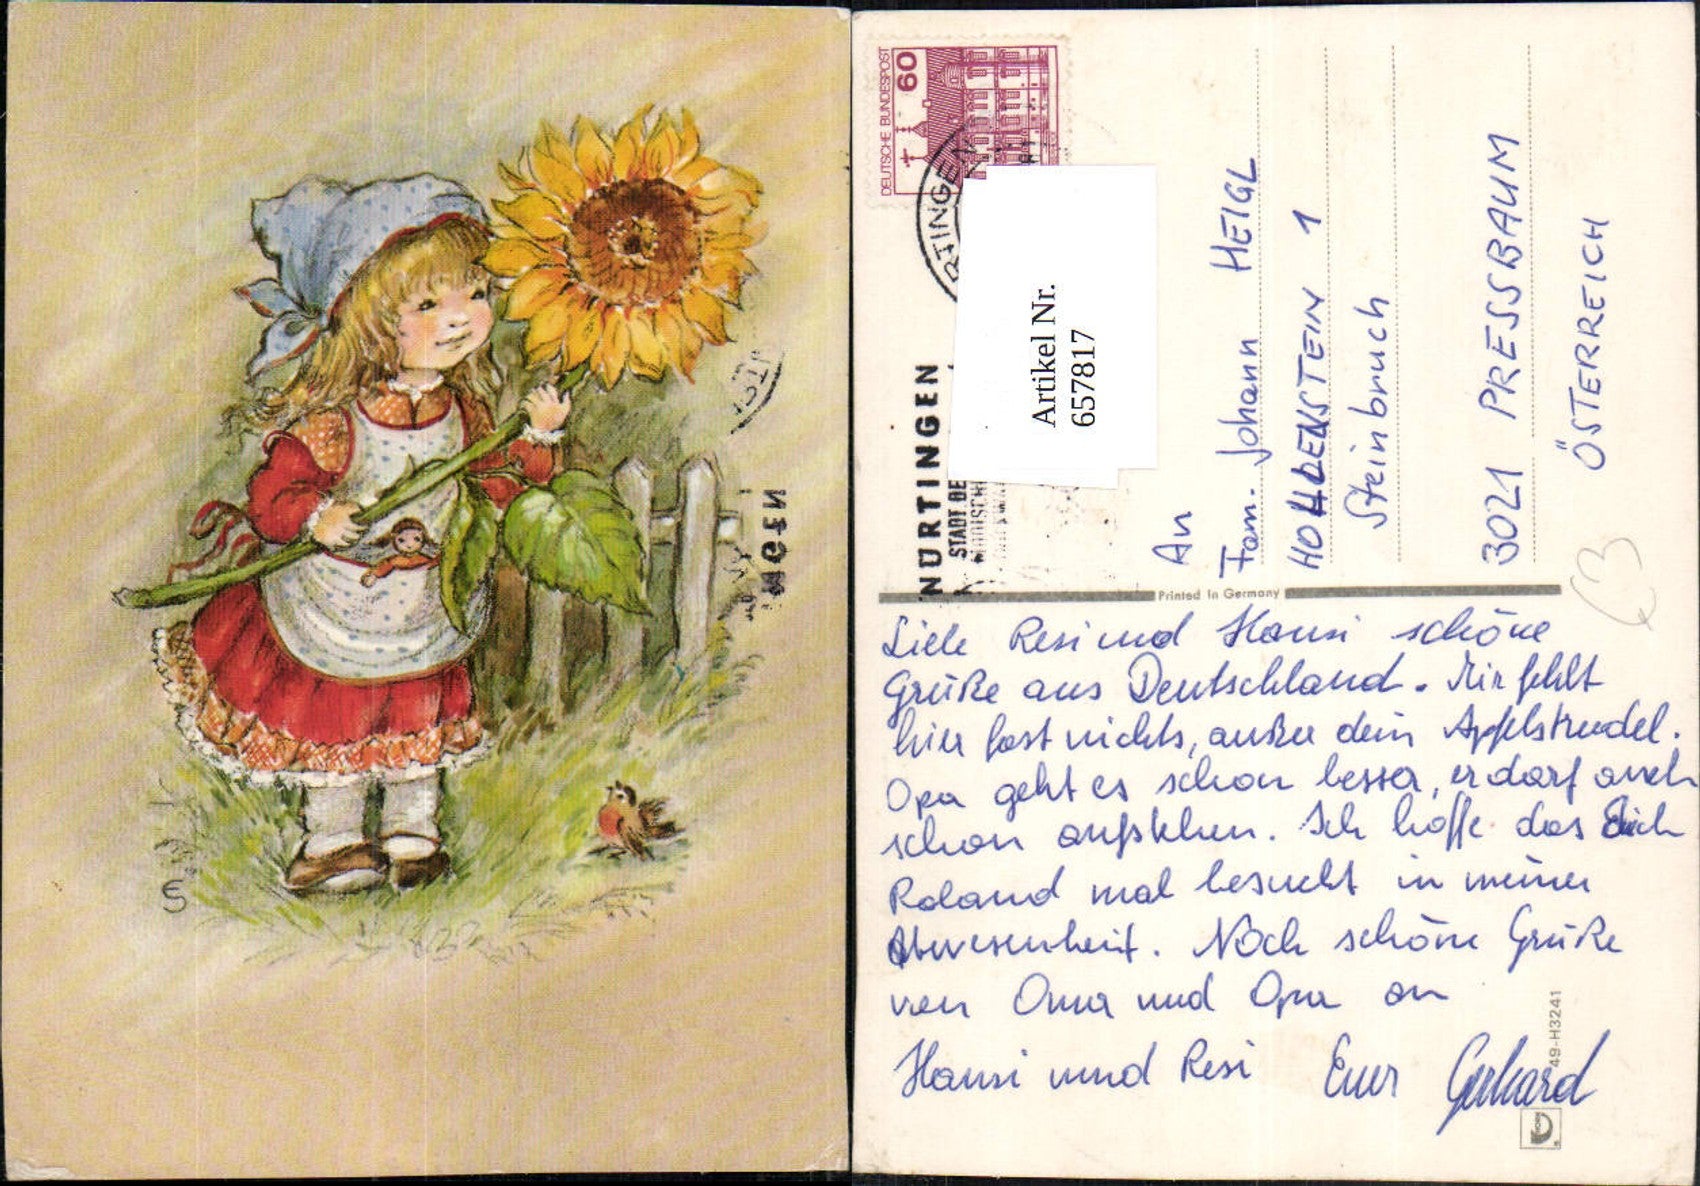 DEUTSCHE BUNDESPOST
60
NÜRTINGEN
STADT DE
Artikel Nr.
657817
An
Fam. Johann HEIGL
HOHLENSTEIN 1
Steinbruch
3021 PRESSBAUM
ÖSTERREICH
Printed in Germany
Liebe Resi und Hansi schöne
Grüße aus Deutschland. Mir fehlt
hier fast nichts, außer dein Apfelstrudel.
Opa geht es schon besser, er darf auch
schon aufstehen. Ich hoffe das Euch
Roland mal besucht in meiner
Abwesenheit. Noch schöne Grüße
von Oma und Opa an
Hansi und Resi Euer Gerhard
49-H3241